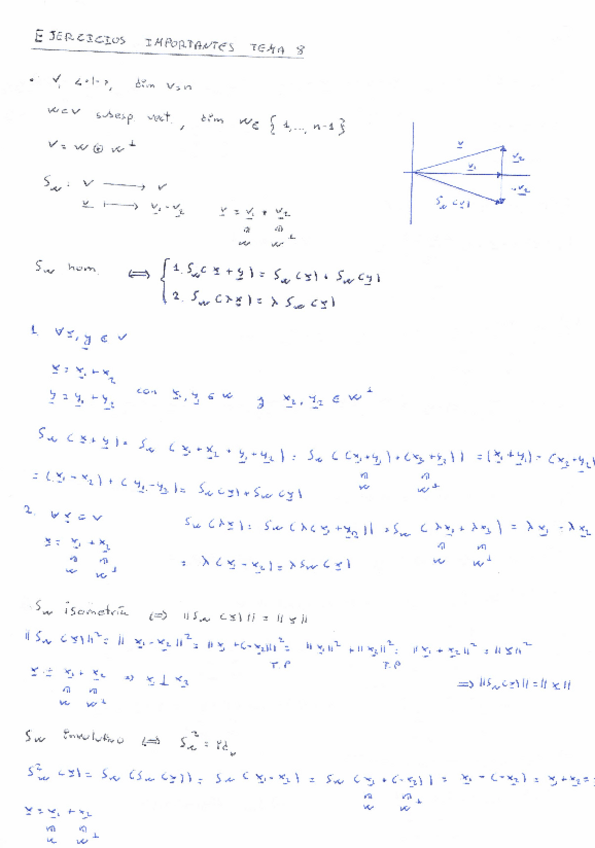 EJERCICIOS IMPORTANTES TEMA 8
• V, <·|·>, dim V=n
W⊂V subesp vect, dim W∈ {1,...,n-1}
V = W ⊕ W^⊥
S_W: V ⟶ V
v ⟼ v₁-v₂  v = v₁ + v₂
∈ ∈
W W^⊥
v
v₁
v₂
-v₂
S_W(v)
S_W hom. ⟺ { 1. S_W(x+y) = S_W(x) + S_W(y)
2. S_W(λx) = λ S_W(x)
1. ∀x,y ∈ V
x = x₁+x₂
y = y₁+y₂ con x₁,y₁ ∈ W y x₂,y₂ ∈ W^⊥
S_W(x+y) = S_W(x₁+x₂+y₁+y₂) = S_W((x₁+y₁)+(x₂+y₂)) = (x₁+y₁)-(x₂+y₂)
∈ ∈
W W^⊥
= (x₁-x₂)+(y₁-y₂) = S_W(x)+S_W(y)
2. ∀x∈V S_W(λx) = S_W(λ(x₁+x₂)) = S_W(λx₁+λx₂) = λx₁-λx₂
x = x₁+x₂
∈ ∈ ∈ ∈
W W^⊥ W W^⊥
= λ(x₁-x₂) = λS_W(x)
S_W isometría ⟺ ||S_W(x)|| = ||x||
||S_W(x)||² = ||x₁-x₂||² = ||x₁+(-x₂)||² = ||x₁||²+||x₂||² = ||x₁+x₂||² = ||x||²
T.P T.P
x = x₁+x₂ ⇒ x₁ ⊥ x₂ ⟹ ||S_W(x)|| = ||x||
∈ ∈
W W^⊥
S_W involutivo ⟺ S_W² = id_V
S_W²(x) = S_W(S_W(x)) = S_W(x₁-x₂) = S_W(x₁+(-x₂)) = x₁-(-x₂) = x₁+x₂=
∈ ∈
W W^⊥
x = x₁+x₂
∈ ∈
W W^⊥